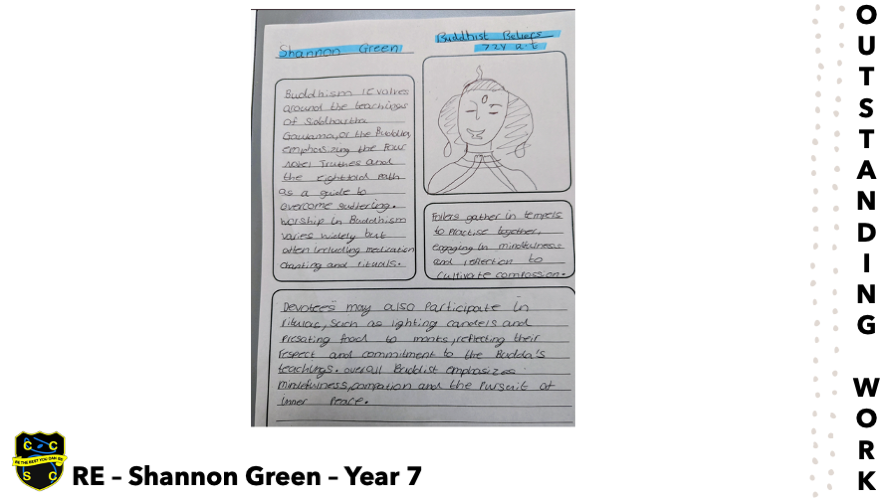 Shannon Green
Buddhist Beliefs
Buddhism revolves
around the teachings
of Siddhartha
Gautama, or the Buddha,
emphasizing the Four
Noble Truthes and
the eightfold path
as a guide to
overcome suffering.
worship in Buddhism
varies widely but
often including
chanting and rituals.
gather in
to practise together,
engaging in mindfulness
and reflection to
cultivate compassion.
Devotees may also participate in
such as lighting candels and
to monks, reflecting their
respect and commitment to the Budda's
teachings. overall Buddist emphasizes
mindfulness, and the pursuit of
inner peace.
OUTSTANDING WORK
C C
BE THE BEST YOU CAN BE
S C
RE – Shannon Green – Year 7